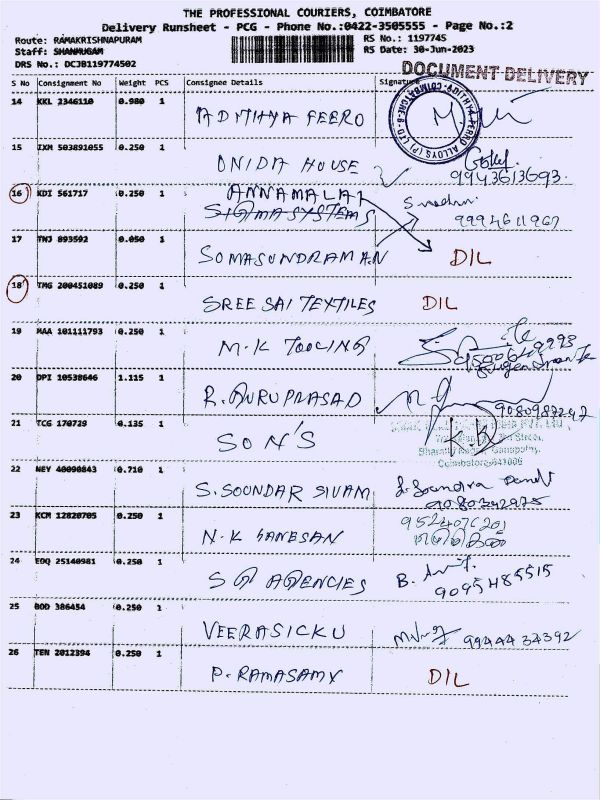 THE PROFESSIONAL COURIERS, COIMBATORE
Delivery Runsheet - PCG - Phone No.:0422-3505555 - Page No.:2
Route: RAMAKRISHNAPURAM
RS No.: 1197745
Staff: SHANMUGAM
RS Date: 30-Jun-2023
DRS No.: DCJB119774502
DOCUMENT DELIVERY
S No Consignment No Weight PCS Consignee Details Signature
14 KKL 2346110 0.980 1
ADITHYA FEERO
15 IXM 503891055 0.250 1
ONIDA HOUSE
9943613693.
16 KDI 561717 0.250 1 ANNAMALAI
SIGMA SYSTEMS
9994611967
17 TNJ 893592 0.050 1
SOMASUNDRAMAN DIL
18 TMG 200451089 0.250 1
SREE SAI TEXTILES DIL
19 MAA 101111793 0.250 1
M.K TOOLING
20 DPI 10538646 1.115 1
R. GURUPRASAD
9080987247
21 TCG 170729 0.135 1
SON'S K.B
Coimbatore-641006
22 NEY 40090843 0.710 1
S. SOUNDAR SIVAM
9080342975
23 KCM 12820705 0.250 1
N.K GANESAN
24 EOQ 25140981 0.250 1
SG AGENCIES B.
9095485515
25 BOD 386454 0.250 1
VEERASICKU 9944434392
26 TEN 2012394 0.250 1
P. RAMASAMY DIL